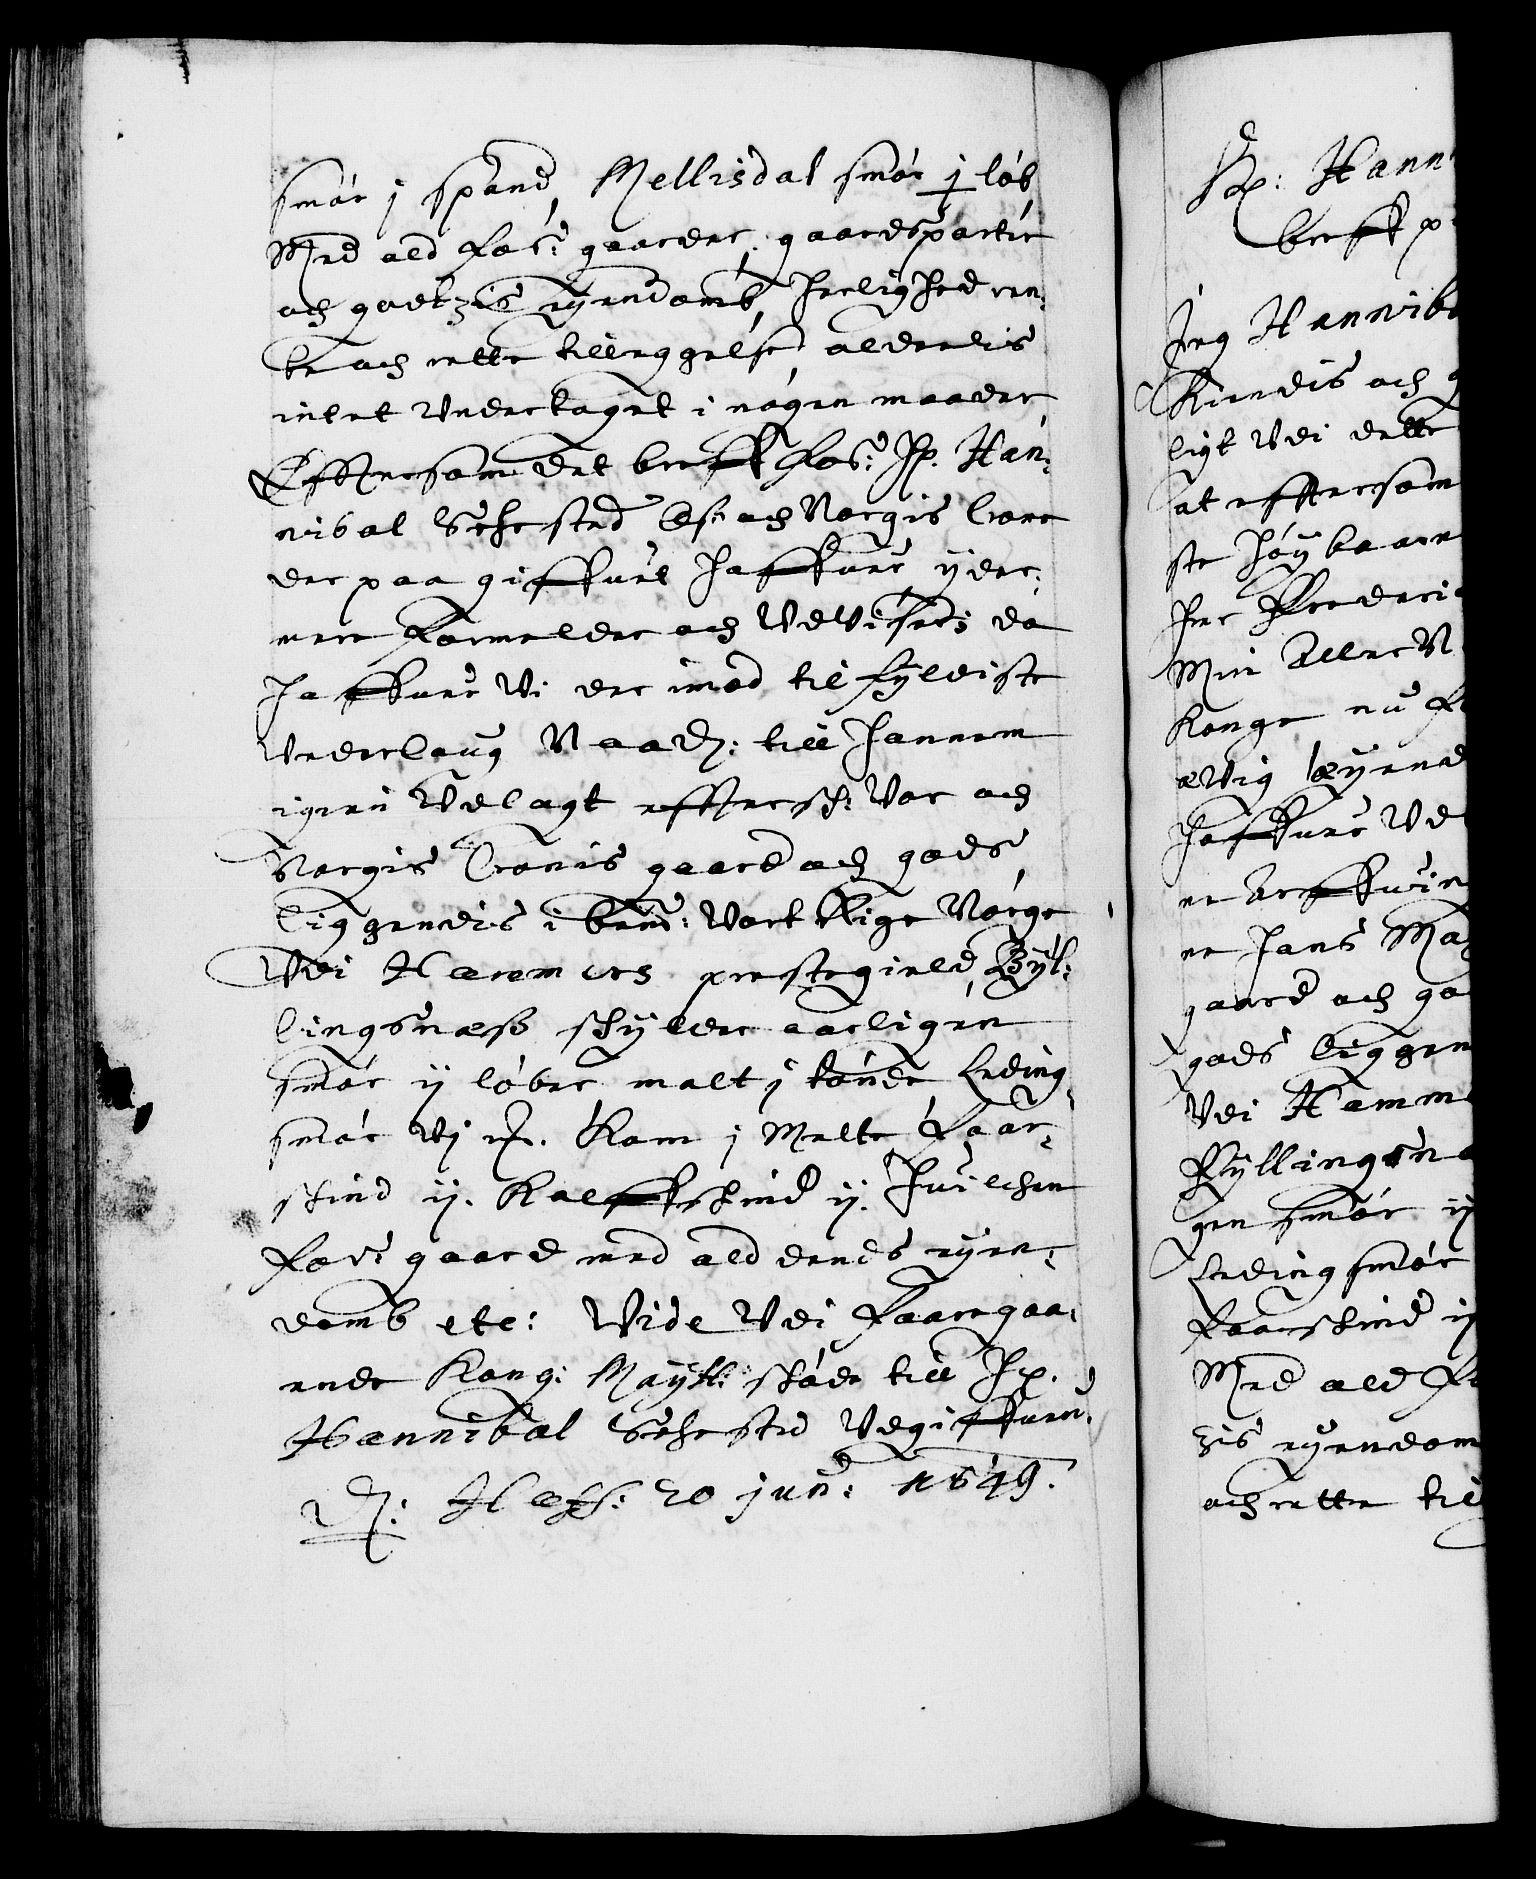 smør j spand, Mellisdal smør j løb
Med ald forn: gaarder, gaardsparter
och godtzis eyendomb, herlighed ren:
te och rette tilleggelse, alderelis
intet undertaget i nogen maader
Effter som det breff forn: Hr. Han:
nibal Sehested Os och Norgis Crone
der paa giffuet haffuer yder:
mere formelder och Udviser; da
haffuer Vi der imod til fyldiste
Vederlaug Naad: till hannem
igien Udlagt effterschr: Vor och
Norgis Cronis gaard och gods
liggendis i bemt: Vort Rige Norge
Udi Haremers prestegield, Byl:
lingsness schylder aarligen
smør ij løber malt j tønde Leding,
smør Vj mr. Korn j Melte, Faar,
skind ij. Kalffskind ij. Huilchen
forn: gaard med ald dends eyen:
domb etc: Vide Udi foregaa:
ende Kong: Maytt: skøde till Hr.
Hannibal Sehested Udgiffuen.
D: Haffn: 20 junij: 1649.
Hr: Hann
breff p
Jeg Hannib
Kiendis och g
ligt Udi dette
at effttersom
ste høybaarn
Herr Frederi
Min Aller N
Konge nu f
ævig Eyend
haffuer Ud
ne Arffuin
ne hans Ma
gaard och go
gods liggen
Udi Hamm
Byllingsn
gen smør ij
Leding smør
faarskind ij
Med ald f
zis eyendom
och rette til